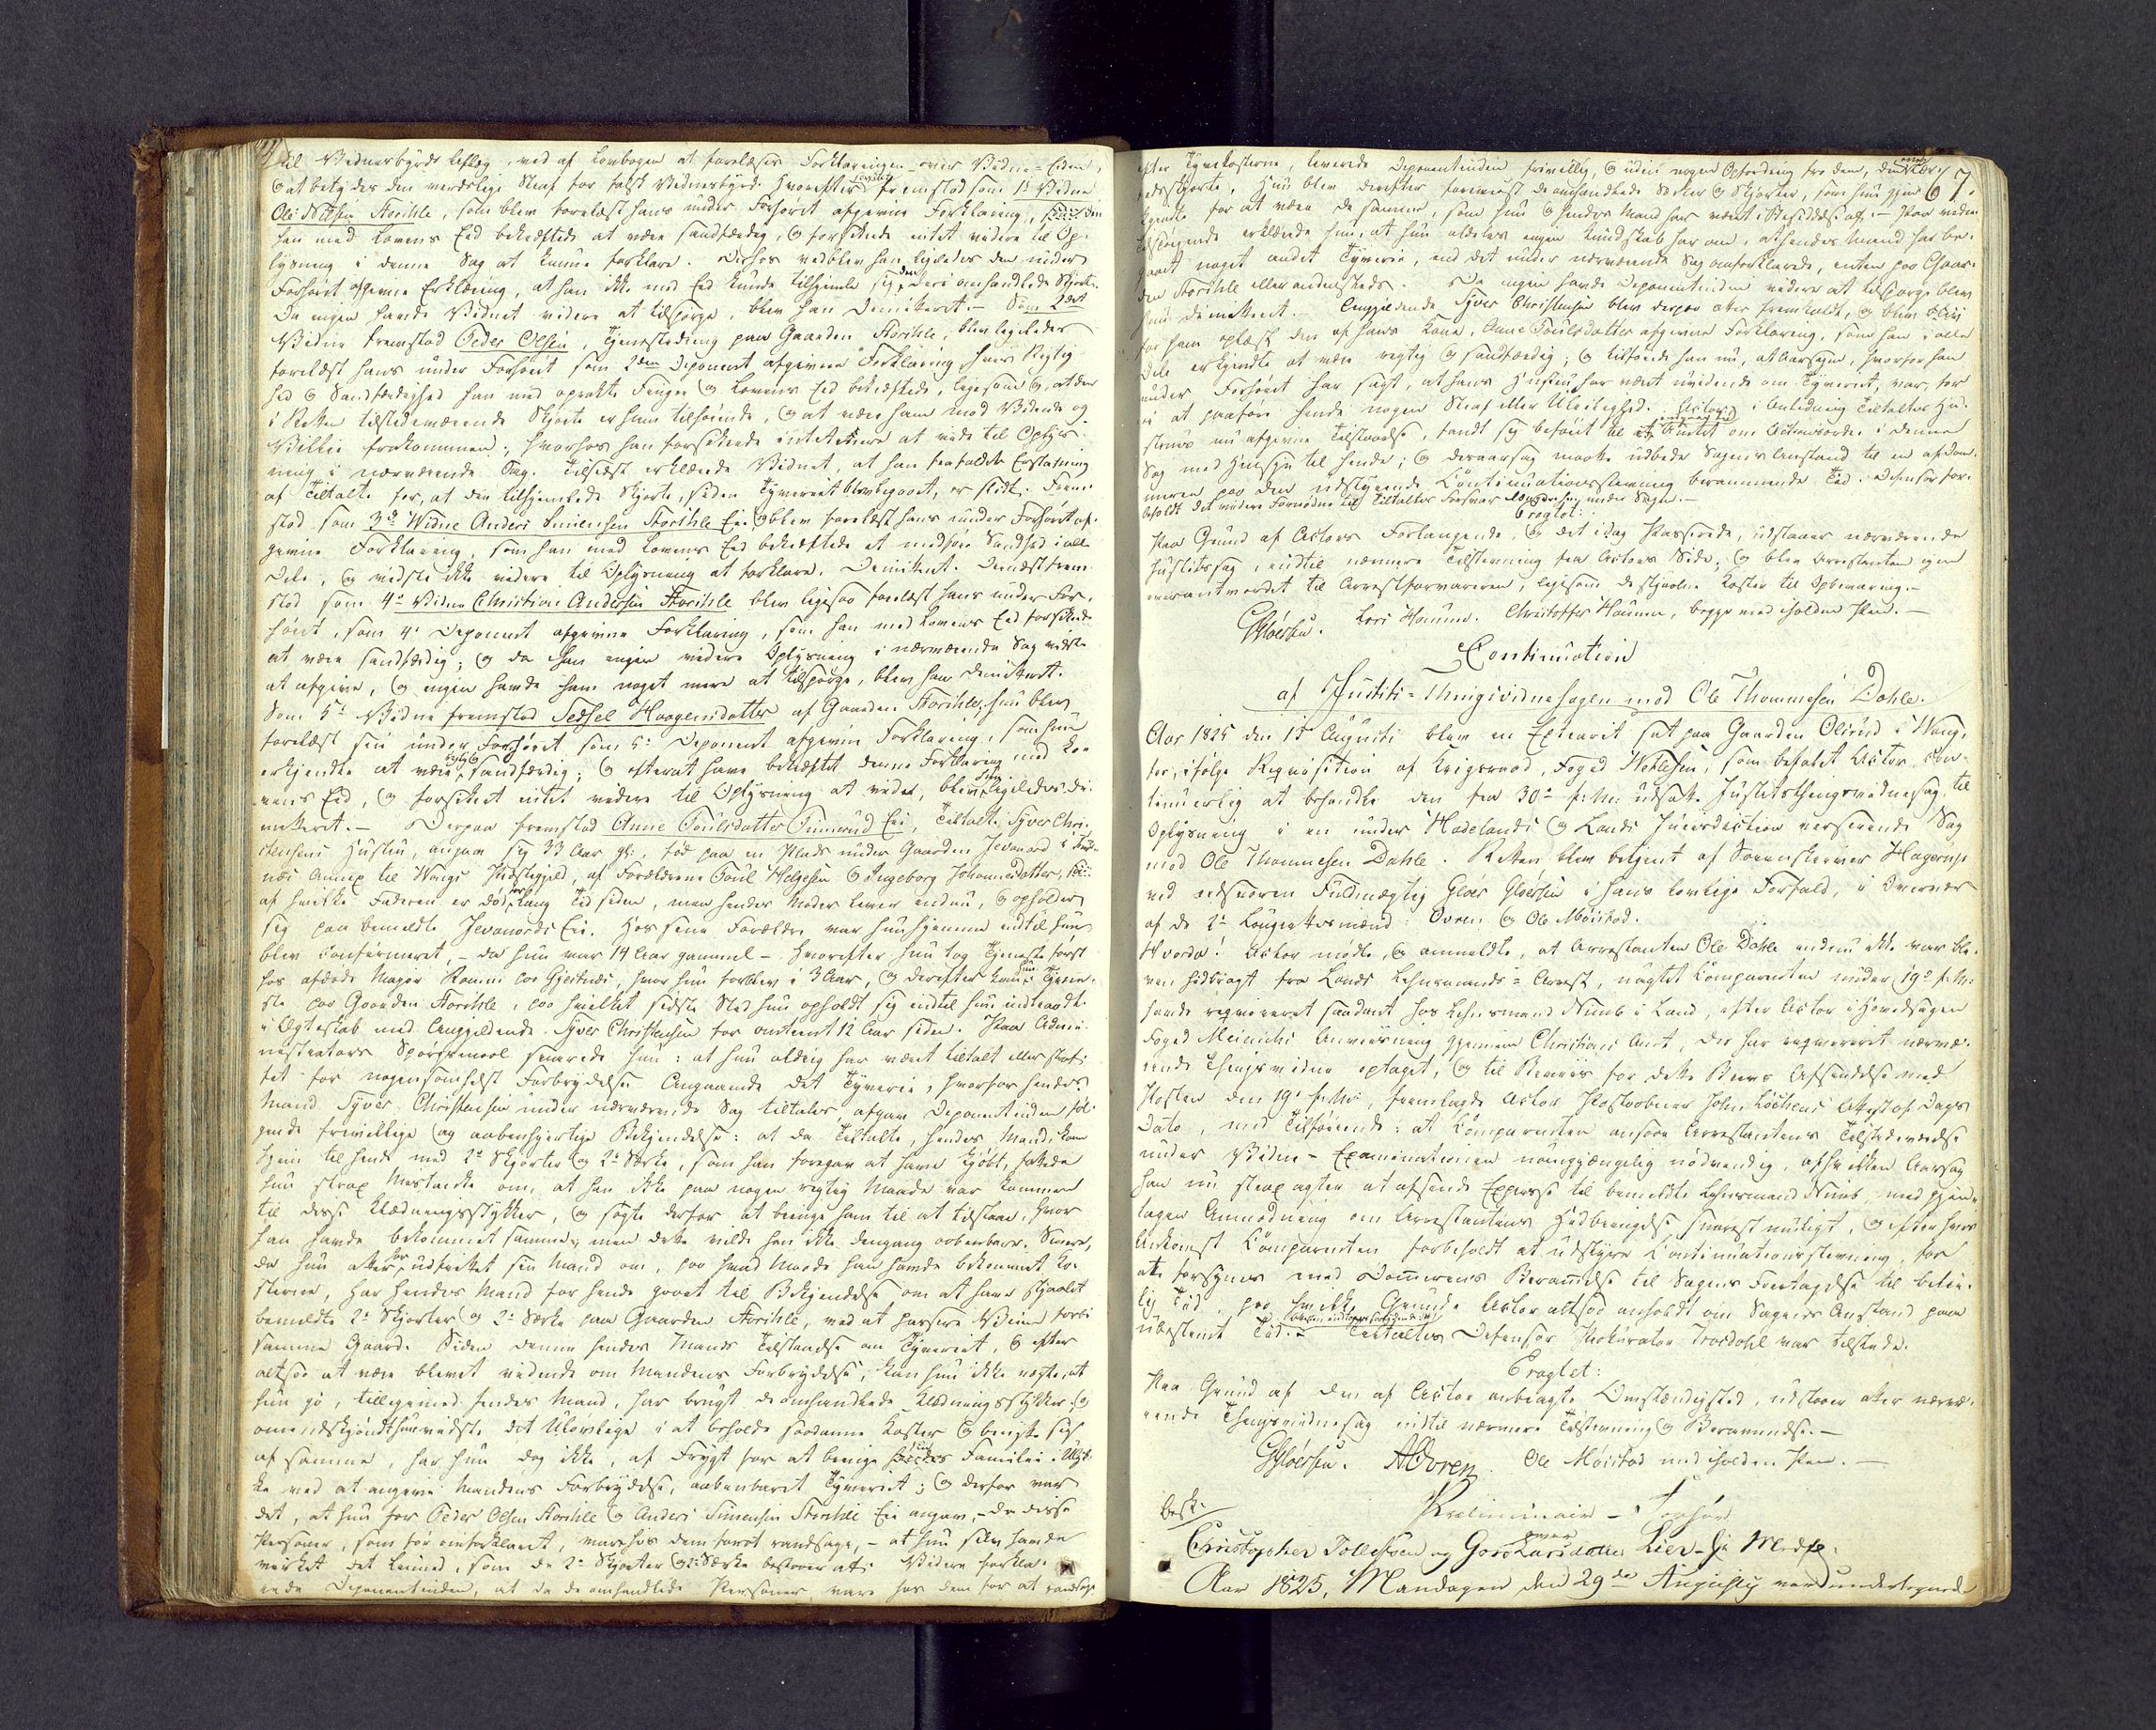 til Vidnesbyrds Aflæg, ved af Lovbogen at forelæses Forklaringen over Vidne-Eiden,
og at betydes den verdslige Straf for falsk Vidnesbyrd. Hvorefter fremstod som 1ste Vidne
Ole Nilsen Storihle, som blev forelæst hans under Forhøret afgivne Forklaring, som
han med Lovens Eed bekræftede at være sandfærdig, og forsikrede intet videre til Op-
lysning i denne Sag at kunne forklare. Derhos vedblev han ligeledes den under
Forhøret afgivne Erklæring, at han ikke med Eed kunde tilhjemle sig den deri omhandlede Skjorte.
Da ingen havde Vidnet videre at tilspørge, blev han demitteret. – Som 2det
Vidne fremstod Peder Olsen, Tjenestedreng paa Gaarden Storihle, blev ligeledes
forelæst hans under Forhøret som 2den Deponent afgivne Forklaring, hvis Rigtig-
hed og Sandfærdighed han med oprakte Fingre og Lovens Eed bekræftede, ligesom og, at den
i Retten tilstedeværende Skjorte er ham tilhørende, og at være ham mod Vidende og
Villie frakommen; hvorhos han forsikrede intet mere at vide til Oplys-
ning i nærværende Sag. Tilsidst erklærede Vidnet, at han frafaldt Erstatning
af Tiltalte for, at den tilhjemlede Skjorte, siden Tyveriet blev begaaet, er slidt. Frem-
stod som 3de Vidne Anders Simensen Storihle Eie og blev forelæst hans under Forhøret af-
givne Forklaring, som han med Lovens Eed bekræftede at medføre Sandhed i alle
Dele, og vidste ikke videre til Oplysning at forklare. Demitteret. Dernæst frem-
stod som 4de Vidne Christian Andersen Storihle blev ligesaa forelæst hans under For-
høret, som 4de Deponent afgivne Forklaring, som han med Lovens Eed forsikrede
at være sandfærdig; og da han ingen videre Oplysning i nærværende Sag vidste
at afgive, og ingen havde ham noget mere at tilspørge, blev han demitteret.
Som 5te Vidne fremstod Sedsel Haagensdatter af Gaarden Storihle, hun blev
forelæst sin under Forhøret som 5te Deponent afgivne Forklaring, som hun
erkjendte at være rigtig og sandfærdig; og efterat have bekræftet denne Forklaring med Lo-
vens Eed, og forsikret intet videre til Oplysning at vide, blev hun ligeledes de-
mitteret. – Derpaa fremstod Anne Poulsdatter Eie, Tiltalte Syver Chri-
stensens Hustru, angav sig 33 Aar gl:, fød paa en Plads under Gaarden Jevanord i
næs Annex til Vangs Præstegjeld, af Forældrene Poul Helgesen og Ingeborg Johannesdatter,
af hvilke Faderen er død for lang Tid siden, men hendes Moder lever endnu, og opholder
sig paa bemeldte Jevanords Eie. Hos sine Forældre var hun hjemme indtil hun
blev confirmeret, – da hun var 14 Aar gammel – hvorefter hun tog Tjeneste først
hos afdøde Major Ramm paa Gjestrud, hvor hun forblev i 3 Aar, og derefter kom hun i Tjene-
ste paa Gaarden Storihle, paa hvilket sidste Sted hun opholdt sig indtil hun indtraadte
i Ægteskab med Angjeldende Syver Christensen for omtrent 12 Aar siden. Paa Admi-
nistrators Spørgsmaal svarede hun: at hun aldrig har været tiltalt eller straf-
fet for nogensomhelst Forbrydelse. Angaaende det Tyverie, hvorfor hendes
Mand Syver Christensen under nærværende Sag tiltales, afgav Deponentinden føl-
gende frivillige og aabenhjertige Bekjendelse: at da Tiltalte, hendes Mand, kom
hjem til hende med 2de Skjorter og 2de Særke, som han foregav at have kjøbt, fattede
hun strax Mistanke om, at han ikke paa nogen rigtig Maade var kommen
til disse Klædningsstykker, og søgte derfor at bringe ham til at tilstaae, hvor
han havde bekommet samme, men dette vilde han ikke dengang aabenbare. Senere,
da hun atter har udfrittet sin Mand om, paa hvad Maade han havde bekommet Ko-
sterne, har hendes Mand for hende gaaet til Bekjendelse om at have stjaalet
bemeldte 2de Skjorter og 2de Særke paa Gaarden Storihle, ved at passere Veien forbi
samme Gaard. Siden denne hendes Mands Tilstaaelse om Tyveriet, og efter
altsaa at være blevet vidende om Mandens Forbrydelse, kan hun ikke nægte, at
hun jo, tilligemed hendes Mand, har brugt de omhandlede Klædningsstykker; og
omendskjøndt hun vidste det Ulovlige i at beholde saadanne Koster og benytte sig
af samme, har hun dog ikke, af Frygt for at bringe sin Familie i Ulyk-
ke ved at angive Mandens Forbrydelse, aabenbaret Tyveriet; og derfor var
det, at hun for Peder Olsen Storihle og Anders Simensen Storihle Eie angav, – da disse
Personer, som før omforklaret, vare hos dem forat randsage, – at hun selv havde
virket det Linned, som de 2de Skjorter og 2de Særke bestaaer af. Videre forkla-
rede Deponentinden, at da de omhandlede Personer vare hos dem for at randsage
67.
efter Tyvekosterne, leverede Deponentinden frivillig, og uden nogen Opfordring fra dem,
redsskjorte. Hun blev derefter foreviist de omhandlede Særker og Skjorter, som hun gjen-
kjendte for at være de samme, som hun og hendes Mand har været i Besiddelse af. – Paa videre
Tilspørgende erklærede hun, at hun aldeles ingen Kundskab har om, at hendes Mand har be-
gaaet noget andet Tyverie, end det under nærværende Sag omforklarede, enten paa Gaar-
den Storihle eller andetsteds. Da ingen havde Deponentinden videre at tilspørge blev
hun demitteret. Angjeldende Syver Christensen blev derpaa atter fremkaldt, og blev
for ham oplæst den af hans Kone, Anne Poulsdatter afgivne Forklaring, som han i alle
Dele erkjendte at være rigtig og sandfærdig; og tilføiede han nu, at Aarsagen, hvorfor han
under Forhøret har sagt, at hans Hustru har været uvidende om Tyveriet, var, for
ei at paaføre hende nogen Straf eller Uleilighed. Actor, i Anledning Tiltaltes Hu-
strues nu afgivne Tilstaaelse, fandt sig beføiet til at om Actionsorden i denne
Sag med Hensyn til hende; og deraarsag maatte udbede Sagens Anstand til en af Dom-
meren paa den udstedende Continuationsstevning berammende Tid. Defensor for-
beholdt det videre Fornødne til Tiltaltes Forsvar under Sagen. –
Eragtet:
Paa Grund af Actors Forlangende, og det idag Passerede, udstaaer nærværende
Justitssag, indtil nærmere Tilstevning fra Actors Side; og blev Arrestanten igjen
overantvordet til Arrestforvareren, ligesom de stjaalne Koster til Opbevaring. –
GGløersen. Lars Houum. Christoffer Houum, begge med iholden Pen. –
Continuation
af Justits-Thingsvidnesagen mod Ole Thommesen Dahle.
Aar 1825 den 15 Augusti blev en Extraret sat paa Gaarden Olsrud i Vang,
for, ifølge Requisition af Krigsraad, Foged Weklesen, som befalet Actor, con-
tinuerlig at behandle den fra 30te f: M: udsatte Justitsthingsvidnesag til
Oplysning i en under Hadelands og Lands Jurisdiction verserende Sag
mod Ole Thommesen Dahle. Retten blev betjent af Sorenskriver Hagerup
ved edsvoren Fuldmægtig Gløer Gløersen i hans lovlige Forfald, i Overvær
af de 2de Laugrettesmænd: Ovren og Ole Møistad.
Hvorda! Actor mødte, og anmeldte, at Arrestanten Ole Dahle endnu ikke var ble-
ven hidbragt fra Lands Lehnsmands-Arrest, uagtet Comparenten under 19de f: M:
havde requireret saadant hos Lehnsmand Nimb i Land, efter Actor i Hovedsagen
Foged Meinichs Anviisning gjennem Christians Amt, der har requireret nærvæ-
rende Thingsvidne optaget, og til Beviis for dette Brevs Afsendelse med
Posten den 19de f: M:, fremlagde Actor Postaabner John Attest af Dags
Dato, med Tilføiende: at Comparenten ansaae Arrestantens Tilstedeværelse
under Vidne-Examinationen uomgjængelig nødvendig, af hvilken Aarsag
han nu strax agter at afsende Expresse til bemeldte Lehnsmand Nimb, med gjen-
tagen Anmodning om Arrestantens Hidbringelse snarest muligt, og efter hvis
Ankomst Comparenten forbeholdt at udstyre Continuationsstevning, for
at forsynes med Dommerens Berammelse til Sagens Foretagelse til betime-
lig Tid, paa hvilke Grunde Actor altsaa anholdt om Sagens Anstand paa
ubestemt Tid. – Tiltaltes Defensor Prokurator Trosdahl var tilstede.
Eragtet:
Paa Grund af den af Actor anbragte Omstændighed, udstaaer atter nærvæ-
rende Thingsvidnesag indtil nærmere Tilstevning og Berammelse. –
GGløersen. AOvren Ole Møistad med iholden Pen. –
Besk:
Præliminair-Forhør
Christopher Tollefsen og Lier-Eje Medf:
Aar 1825, Mandagen den 29de Augusty var undertegnede